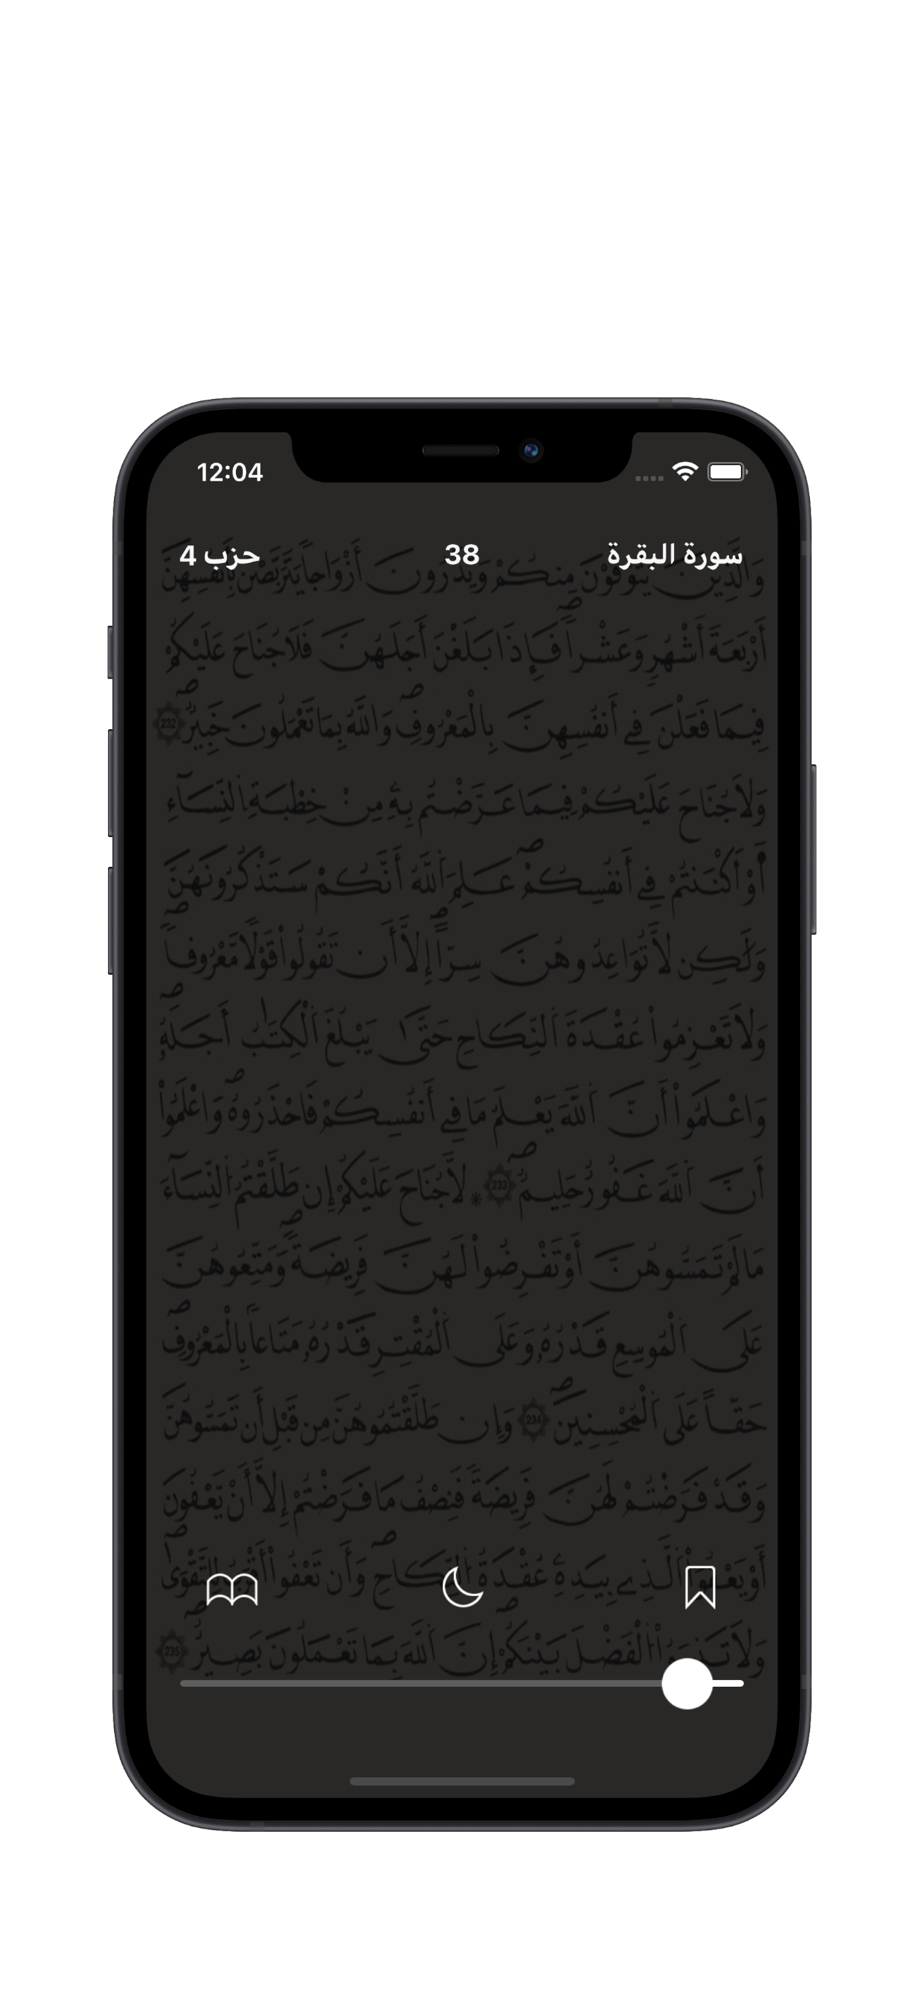 12:04
سورة البقرة 38 حزب 4
وَالذِينَ يُتَوَفَّوْنَ مِنكُمْ وَيَذَرُونَ أَزْوَاجاً يَتَرَبَّصْنَ بِأَنفُسِهِنَّ
أَرْبَعَةَ أَشْهُرٍ وَعَشْراً فَإِذَا بَلَغْنَ أَجَلَهُنَّ فَلَا جُنَاحَ عَلَيْكُمْ
فِيمَا فَعَلْنَ فِي أَنفُسِهِنَّ بِالْمَعْرُوفِ وَاللَّهُ بِمَا تَعْمَلُونَ خَبِيرٌ 232
وَلَا جُنَاحَ عَلَيْكُمْ فِيمَا عَرَّضْتُم بِهِ مِنْ خِطْبَةِ النِّسَاءِ
أَوْ أَكْنَنتُمْ فِي أَنفُسِكُمْ عَلِمَ اَللَّهُ أَنَّكُمْ سَتَذْكُرُونَهُنَّ
وَلَٰكِن لَّا تُوَاعِدُوهُنَّ سِرّاً إِلَّا أَن تَقُولُواْ قَوْلاً مَّعْرُوفاً
وَلَا تَعْزِمُواْ عُقْدَةَ اَلنِّكَاحِ حَتَّىٰ يَبْلُغَ اَلْكِتَٰبُ أَجَلَهُ
وَاعْلَمُواْ أَنَّ اَللَّهَ يَعْلَمُ مَا فِي أَنفُسِكُمْ فَاحْذَرُوهُ وَاعْلَمُواْ
أَنَّ اَللَّهَ غَفُورٌ حَلِيمٌ 233 * لَّا جُنَاحَ عَلَيْكُمْ إِن طَلَّقْتُمُ اُلنِّسَاءَ
مَا لَمْ تَمَسُّوهُنَّ أَوْ تَفْرِضُواْ لَهُنَّ فَرِيضَةً وَمَتِّعُوهُنَّ
عَلَى اَلْمُوسِعِ قَدْرُهُ وَعَلَى اَلْمُقْتِرِ قَدْرُهُ مَتَاعاً بِالْمَعْرُوفِ
حَقّاً عَلَى اَلْمُحْسِنِينَ 234 وَإِن طَلَّقْتُمُوهُنَّ مِن قَبْلِ أَن تَمَسُّوهُنَّ
وَقَدْ فَرَضْتُمْ لَهُنَّ فَرِيضَةً فَنِصْفُ مَا فَرَضْتُمْ إِلَّا أَنْ يَّعْفُونَ
أَوْ يَعْفُوَاْ اَلَّذِي بِيَدِهِ عُقْدَةُ اُلنِّكَاحِ وَأَن تَعْفُواْ أَقْرَبُ لِلتَّقْوَىٰ
وَلَا تَنسَوُاْ اُلْفَضْلَ بَيْنَكُمْ إِنَّ اَللَّهَ بِمَا تَعْمَلُونَ بَصِيرٌ 235